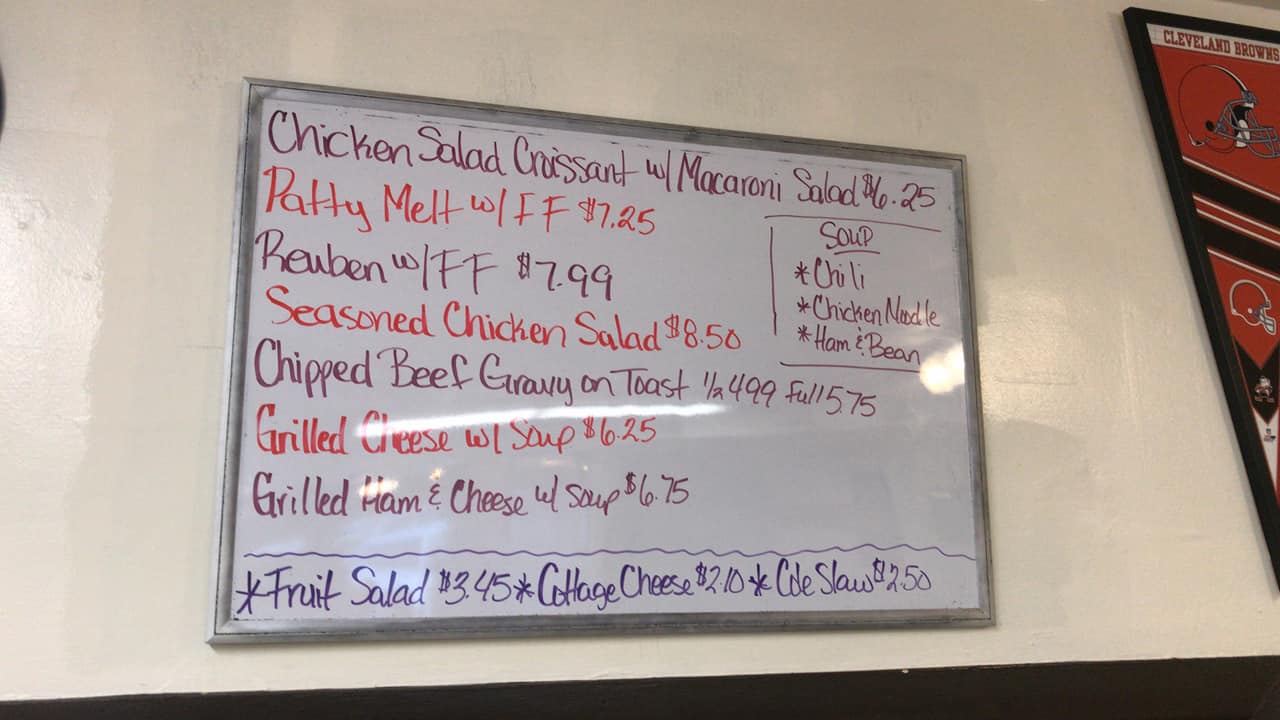 Chicken Salad Croissant w/ Macaroni Salad $6.25
Patty Melt w/ FF $7.25
Reuben w/ FF $7.99
Seasoned Chicken Salad $8.50
Chipped Beef Gravy on Toast 1/2 4.99 Full 5.75
Grilled Cheese w/ Soup $6.25
Grilled Ham & Cheese w/ Soup $6.75
Soup
*Chili
*Chicken Noodle
*Ham & Bean
*Fruit Salad $3.45 *Cottage Cheese $2.10 * Cole Slaw $2.50
CLEVELAND BROWNS